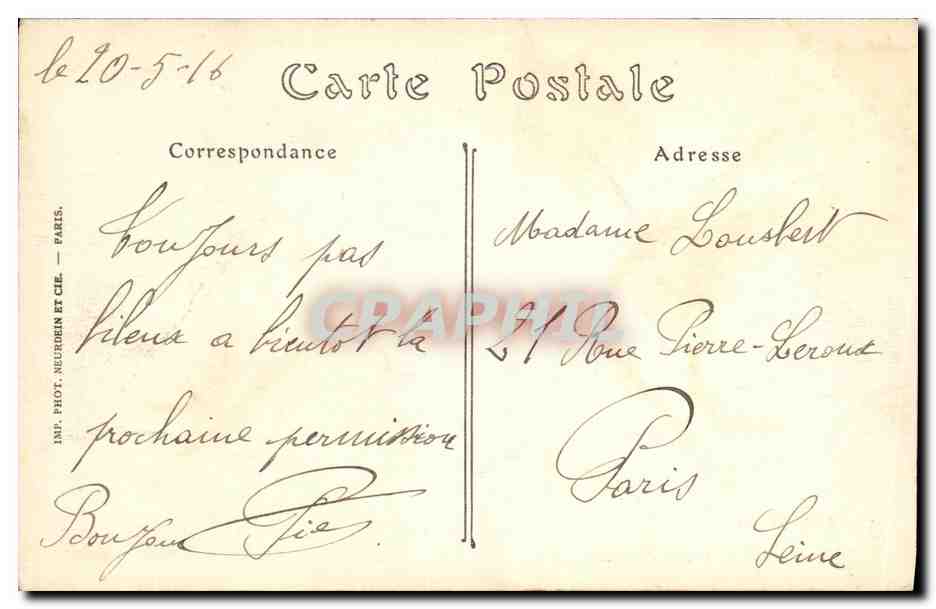 le 20-5-16
Carte Postale
Correspondance
Adresse
IMP. PHOT. NEURDEIN ET CIE. — PARIS.
toujours pas
bileux a bientot la
prochaine permission
Bonjour
Madame Lousbert
21 Rue Pierre-Leroux
Paris
Seine
CRAPHIL